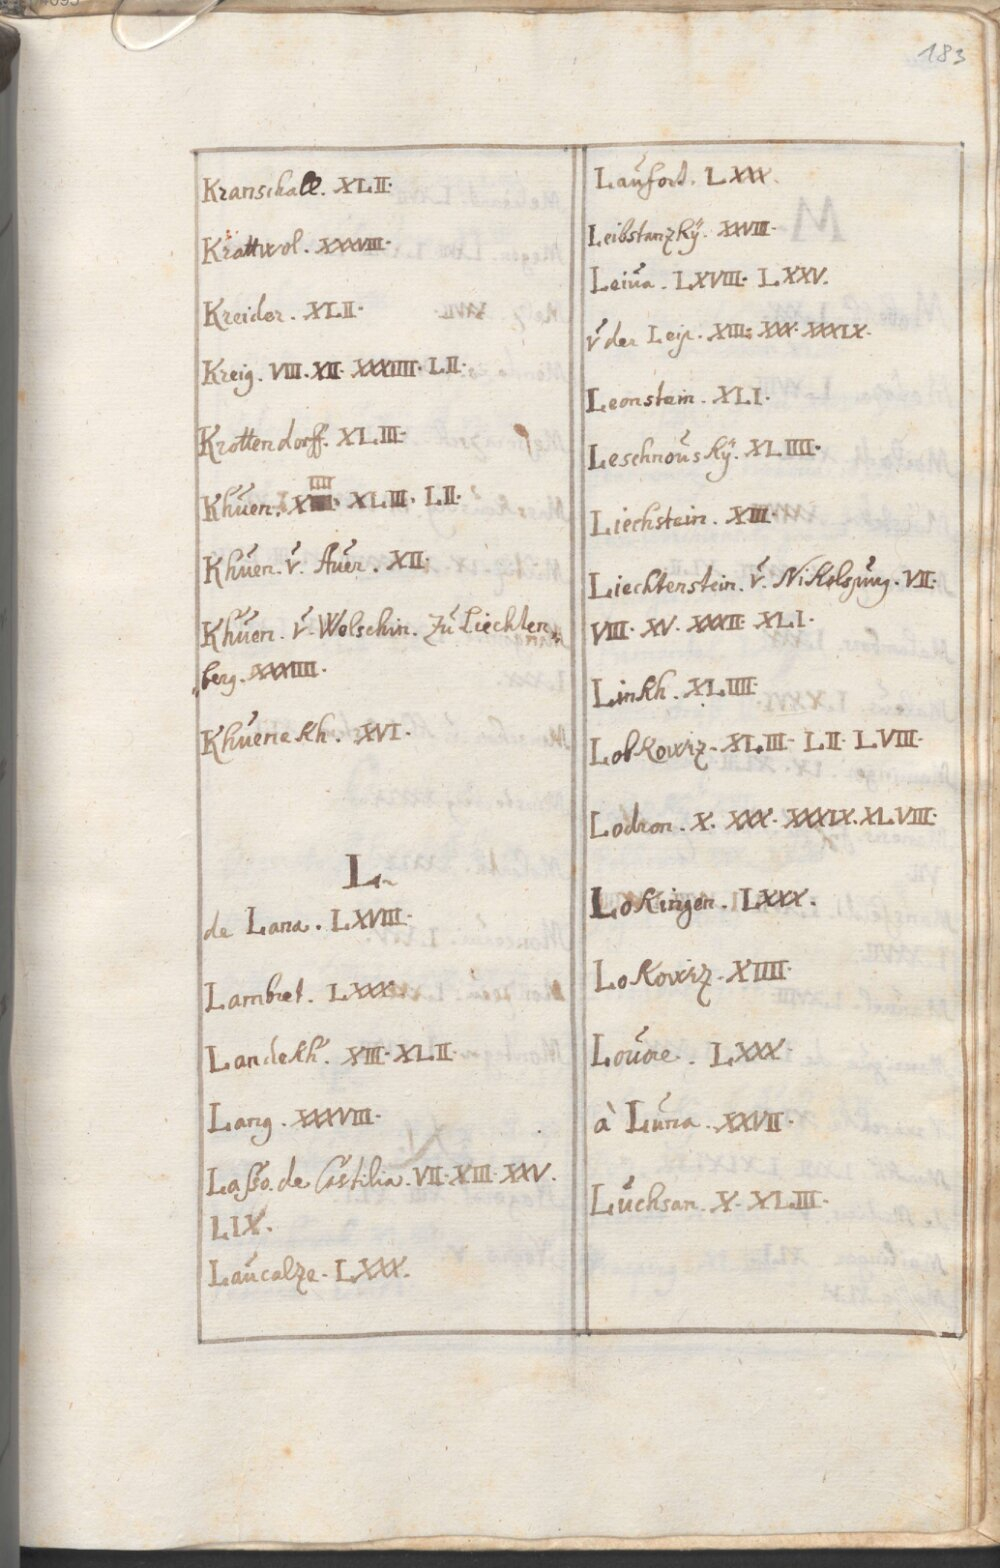 183
Kranschall. XLII.
Krattwol. XXXVIII.
Kreider. XLII.
Kreig. VIII. XII. XXXIIII. LII.
Krottendorff. XLIII.
Khuen. XLIII. LII.
Khuen. v. Auer. XII.
Khuen. v. Welschin. Zu Liechten
berg. XXXIIII.
Khuenekh. XVI.
L.
de Lana. LXVIII.
Lambret. LXXX.
Landekh. XIII. XLII.
Lang. XXXVIII.
Lasso. de Castilia. VII. XIII. XXV.
LIX.
Laucalze. LXXX.
Laufort. LXXX.
Leibstanzkÿ. XXVIII.
Leiua. LXVIII. LXXV.
v der Leÿ. XIII. XXX. XXXIX.
Leonstein. XLI.
Leschnouskÿ. XLIIII.
Liechstein. XIII.
Liechtenstein. v. Nikolspurg. VII.
VIII. XV. XXXII. XLI.
Linkh. XLIIII.
Lobkowiz. XLIII. LII. LVIII.
Lodron. X. XXX. XXXIX. XLVIII.
Lokingen. LXXX.
Lokowiz. XIIII.
Louore. LXXX.
à Luna. XXVII.
Luchsan. X. XLIII.